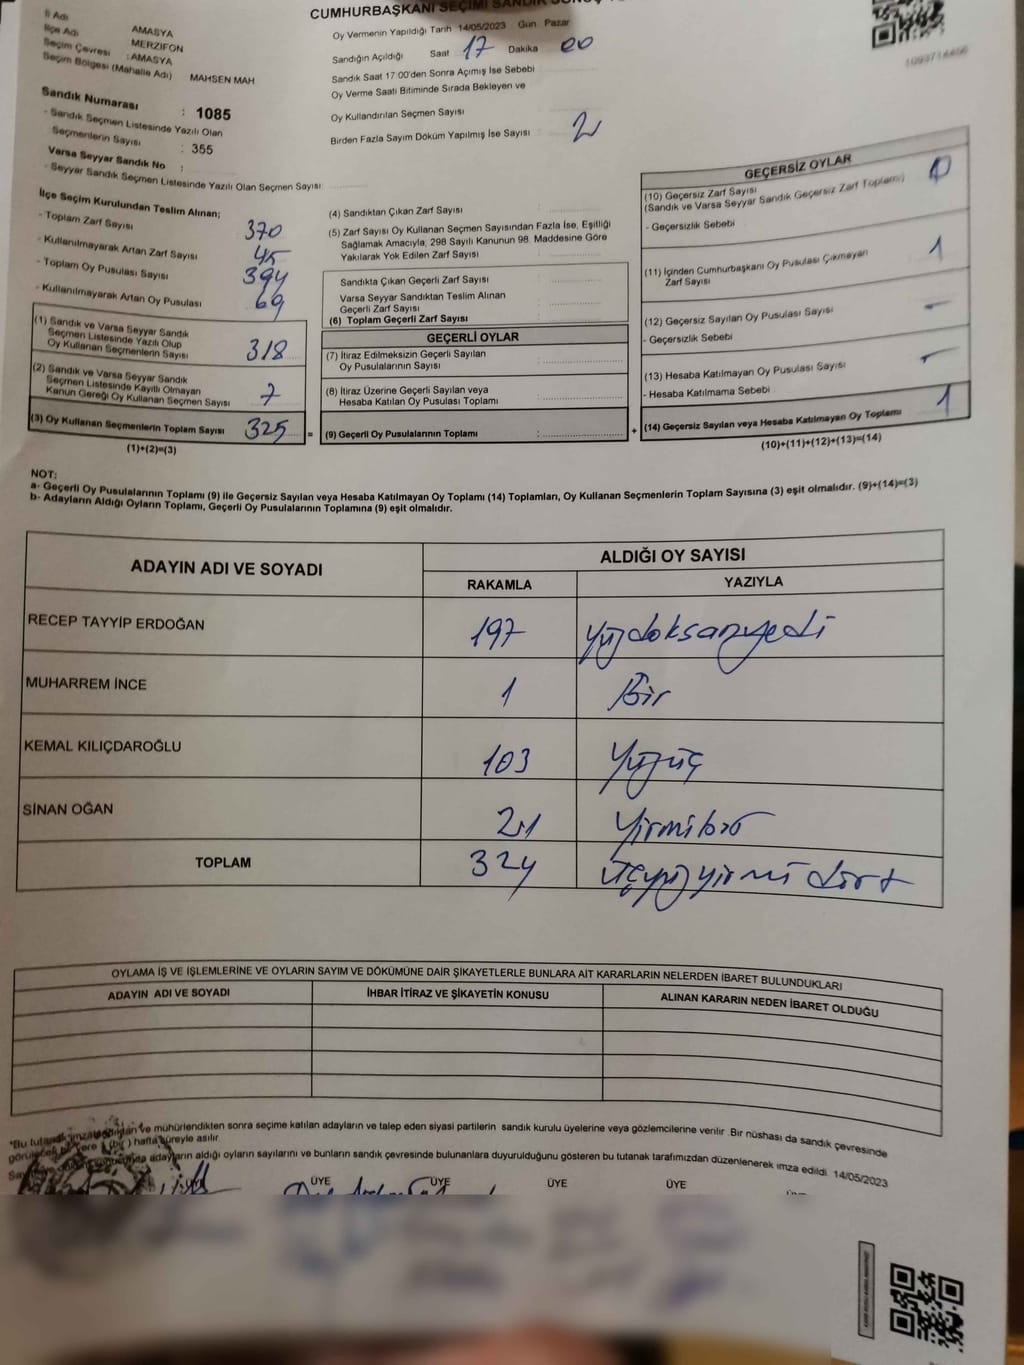 CUMHURBAŞKANI SEÇİMİ SANDIK SONUÇ
İl Adı AMASYA
İlçe Adı MERZİFON
Seçim Çevresi : AMASYA
Seçim Bölgesi (Mahalle Adı) MAHSEN MAH
Sandık Numarası : 1085
- Sandık Seçmen Listesinde Yazılı Olan
Seçmenlerin Sayısı : 355
Varsa Seyyar Sandık No :
- Seyyar Sandık Seçmen Listesinde Yazılı Olan Seçmen Sayısı
Oy Vermenin Yapıldığı Tarih 14/05/2023 Gün Pazar
Sandığın Açıldığı Saat 17 Dakika 00
Sandık Saat 17:00'den Sonra Açımış İse Sebebi
Oy Verme Saati Bitiminde Sırada Bekleyen ve
Oy Kullandırılan Seçmen Sayısı
Birden Fazla Sayım Döküm Yapılmış İse Sayısı : 2
İlçe Seçim Kurulundan Teslim Alınan;
- Toplam Zarf Sayısı 370
- Kullanılmayarak Artan Zarf Sayısı 45
- Toplam Oy Pusulası Sayısı 394
- Kullanılmayarak Artan Oy Pusulası 69
(1) Sandık ve Varsa Seyyar Sandık
Seçmen Listesinde Yazılı Olup
Oy Kullanan Seçmenlerin Sayısı 318
(2) Sandık ve Varsa Seyyar Sandık
Seçmen Listesinde Kayıtlı Olmayan
Kanun Gereği Oy Kullanan Seçmen Sayısı 7
(3) Oy Kullanan Seçmenlerin Toplam Sayısı 325
(1)+(2)=(3)
(4) Sandıktan Çıkan Zarf Sayısı
(5) Zarf Sayısı Oy Kullanan Seçmen Sayısından Fazla İse, Eşitliği
Sağlamak Amacıyla, 298 Sayılı Kanunun 98. Maddesine Göre
Yakılarak Yok Edilen Zarf Sayısı
Sandıkta Çıkan Geçerli Zarf Sayısı
Varsa Seyyar Sandıktan Teslim Alınan
Geçerli Zarf Sayısı
(6) Toplam Geçerli Zarf Sayısı
GEÇERLİ OYLAR
(7) İtiraz Edilmeksizin Geçerli Sayılan
Oy Pusulalarının Sayısı
(8) İtiraz Üzerine Geçerli Sayılan veya
Hesaba Katılan Oy Pusulası Toplamı
= (9) Geçerli Oy Pusulalarının Toplamı
GEÇERSİZ OYLAR
(10) Geçersiz Zarf Sayısı 0
(Sandık ve Varsa Seyyar Sandık Geçersiz Zarf Toplamı)
- Geçersizlik Sebebi
(11) İçinden Cumhurbaşkanı Oy Pusulası Çıkmayan 1
Zarf Sayısı
(12) Geçersiz Sayılan Oy Pusulası Sayısı -
- Geçersizlik Sebebi
(13) Hesaba Katılmayan Oy Pusulası Sayısı -
- Hesaba Katılmama Sebebi
+ (14) Geçersiz Sayılan veya Hesaba Katılmayan Oy Toplamı 1
(10)+(11)+(12)+(13)=(14)
NOT:
a- Geçerli Oy Pusulalarının Toplamı (9) ile Geçersiz Sayılan veya Hesaba Katılmayan Oy Toplamı (14) Toplamları, Oy Kullanan Seçmenlerin Toplam Sayısına (3) eşit olmalıdır. (9)+(14)=(3)
b- Adayların Aldığı Oyların Toplamı, Geçerli Oy Pusulalarının Toplamına (9) eşit olmalıdır.
ADAYIN ADI VE SOYADI ALDIĞI OY SAYISI
RAKAMLA YAZIYLA
RECEP TAYYİP ERDOĞAN 197 yüzdoksanyedi
MUHARREM İNCE 1 Bir
KEMAL KILIÇDAROĞLU 103 yüzüç
SİNAN OĞAN 21 yirmibir
TOPLAM 324 üçyüzyirmi dört
OYLAMA İŞ VE İŞLEMLERİNE VE OYLARIN SAYIM VE DÖKÜMÜNE DAİR ŞİKAYETLERLE BUNLARA AİT KARARLARIN NELERDEN İBARET BULUNDUKLARI
ADAYIN ADI VE SOYADI İHBAR İTİRAZ VE ŞİKAYETİN KONUSU ALINAN KARARIN NEDEN İBARET OLDUĞU
*Bu tutanak ve mühürlendikten sonra seçime katılan adayların ve talep eden siyasi partilerin sandık kurulu üyelerine veya gözlemcilerine verilir. Bir nüshası da sandık çevresinde
(bir) hafta süreyle asılır.
adayların aldığı oyların sayılarını ve bunların sandık çevresinde bulunanlara duyurulduğunu gösteren bu tutanak tarafımızdan düzenlenerek imza edildi. 14/05/2023
ÜYE ÜYE ÜYE ÜYE